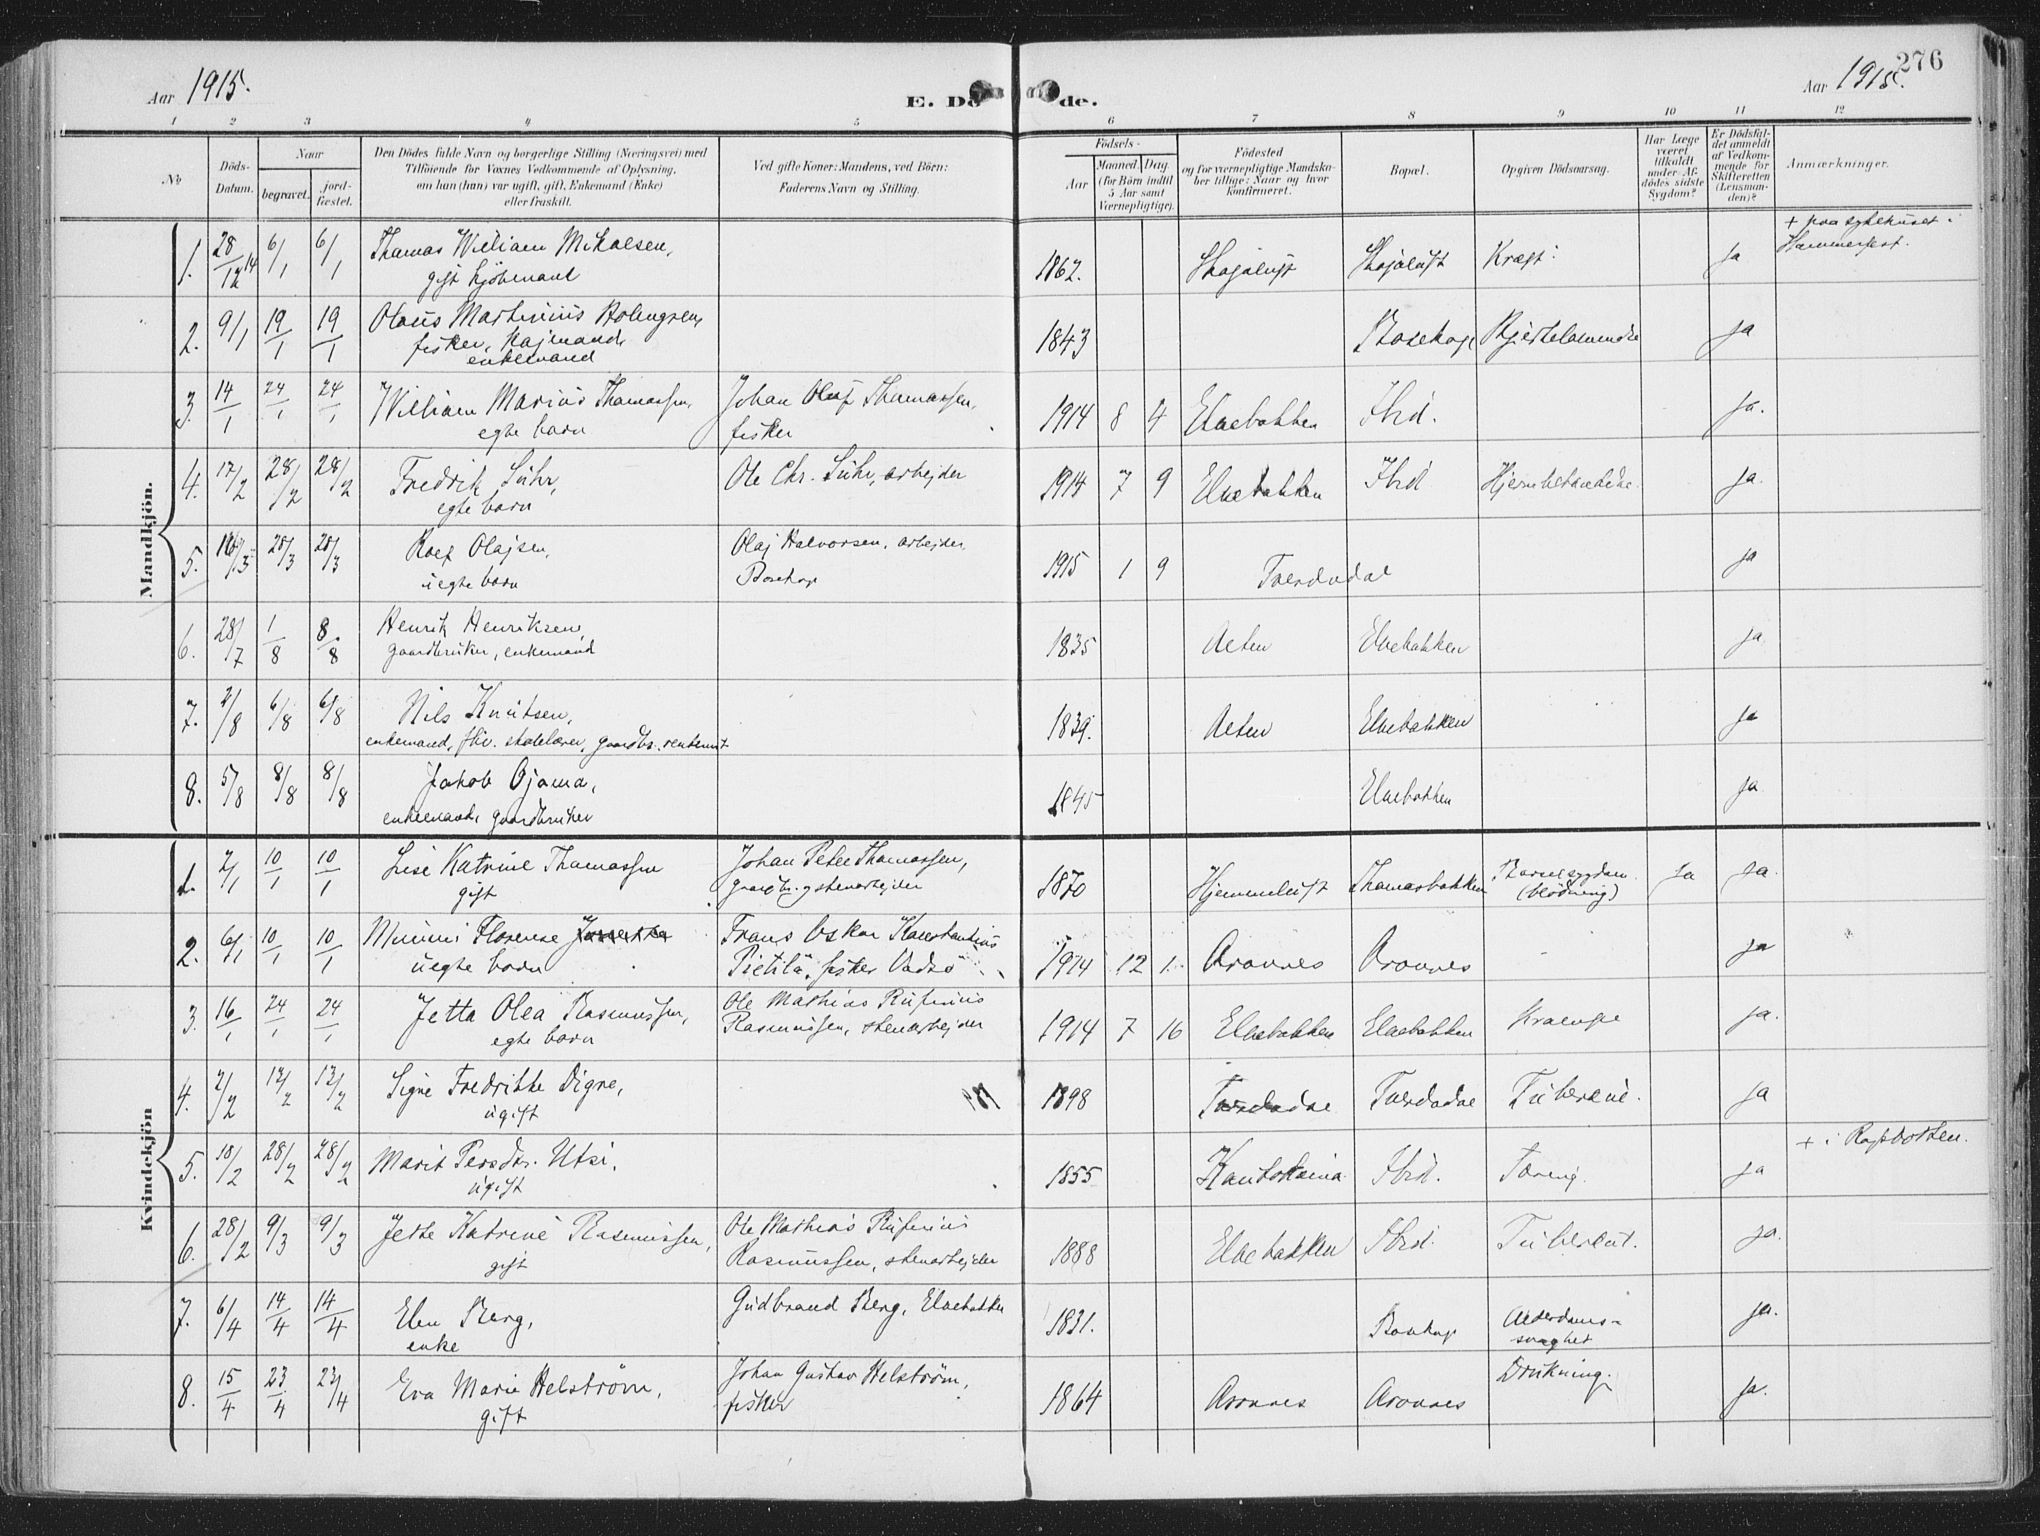 276
Aar 1915.
E. Dö de.
Aar 1915.
1 2 3 4 5 6 7 8 9 10 11 12
No
Döds-
Datum.
Naar
begravet.
jord-
fæstet.
Den Dödes fulde Navn og borgerlige Stilling (Næringsvei) med
Tilföiende for Voxnes Vedkommende af Oplysning,
om han (hun) var ugift, gift, Enkemand (Enke)
eller fraskilt.
Ved gifte Koner: Mandens, ved Börn:
Faderens Navn og Stilling.
Födsels-
Aar
Maaned. Dag.
(for Börn indtil
5 Aar samt
Værnepligtige).
Födested
og for værnepligtige Mandska-
ber tillige: Naar og hvor
konfirmeret.
Bopæl.
Opgiven Dödsaarsag.
Har Læge
været
tilkaldt
under Af-
dödes sidste
Sygdom?
Er Dödsfal-
det anmeldt
af Vedkom-
mende for
Skifteretten
(Lensman-
den)?
Anmærkninger.
Mandkjön.
1. 28/12 14 6/1 6/1 Thomas William Mikalsen, 1862. Kræft. ja + paa sykehuset i
gift kjöbmand Hammerfest.
2. 9/1 19/1 19/1 Olaus Martinius Holmgren, 1843 Bosekop ja
fisker,
enkemand
3. 14/1 24/1 24/1 William Marius Thomassen, Johan Olaf Thomassen, 1914 8 4 Elvebakken Ibid. ja.
egte barn fisker
4. 17/2 28/2 28/2 Fredrik Suhr, Ole Chr. Suhr, arbejder 1914 7 9 Elvebakken Ibid. ja.
egte barn
5. 28/3 28/3 Rolf Olajsen, Olaj Halvorsen, arbejder, 1915 1 9 Tverdvdal ja
uegte barn Bosekop
6. 28/7 1/8 8/8 Henrik Henriksen, 1835 Alten Elvebakken ja
gaardbruker, enkemand
7. 2/8 6/8 6/8 Nils Knutsen, 1839. Alten Elvebakken ja
enkemand, fhv. skolelærer, gaardbr.
8. 5/8 8/8 8/8 Jakob Ojama, 1845 Elvebakken ja
enkemand, gaardbruker
Kvindekjön
1. 2/1 10/1 10/1 Lise Katrine Thomassen Johan Peter Thomassen, 1870 Hjemmeluft Thomasbakken Barselsygdom ja ja.
gift gaardbr. og stenarbejder (blödning)
2. 6/1 10/1 10/1 Mimmi Florense Frans Oskar Konstantius 1914 12 1. Aronnes Aronnes ja
uegte barn Pietilä, fisker Vadsö
3. 16/1 24/1 24/1 Jetta Olea Rasmussen, Ole Mathias Rufinius 1914 7 16 Elvebakken Elvebakken Krampe ja.
egte barn Rasmussen, stenarbejder
4. 2/2 12/2 12/2 Signe Fredrikke Digre, 1898 Tverdvdal Tverdvdal Tuberkul. ja
ugift
5. 10/2 28/2 28/2 Marit Persdtr. Utsi, 1855 Kautokeino Ibid. Tæring. ja + i Rafsbotten.
ugift
6. 28/2 9/3 9/3 Jette Katrine Rasmussen, Ole Mathias Rufinius 1888 Elvebakken Ibid. Tuberkul. ja.
gift Rasmussen, stenarbejder
7. 6/4 14/4 14/4 Elen Berg, Gudbrand Berg, Elvebakken 1831. Bosekop Alderdoms- ja.
enke svaghet
8. 15/4 23/4 23/4 Eva Marie Helström, Johan Gustav Helström, 1864 Aronnes Aronnes Drukning. ja.
gift fisker